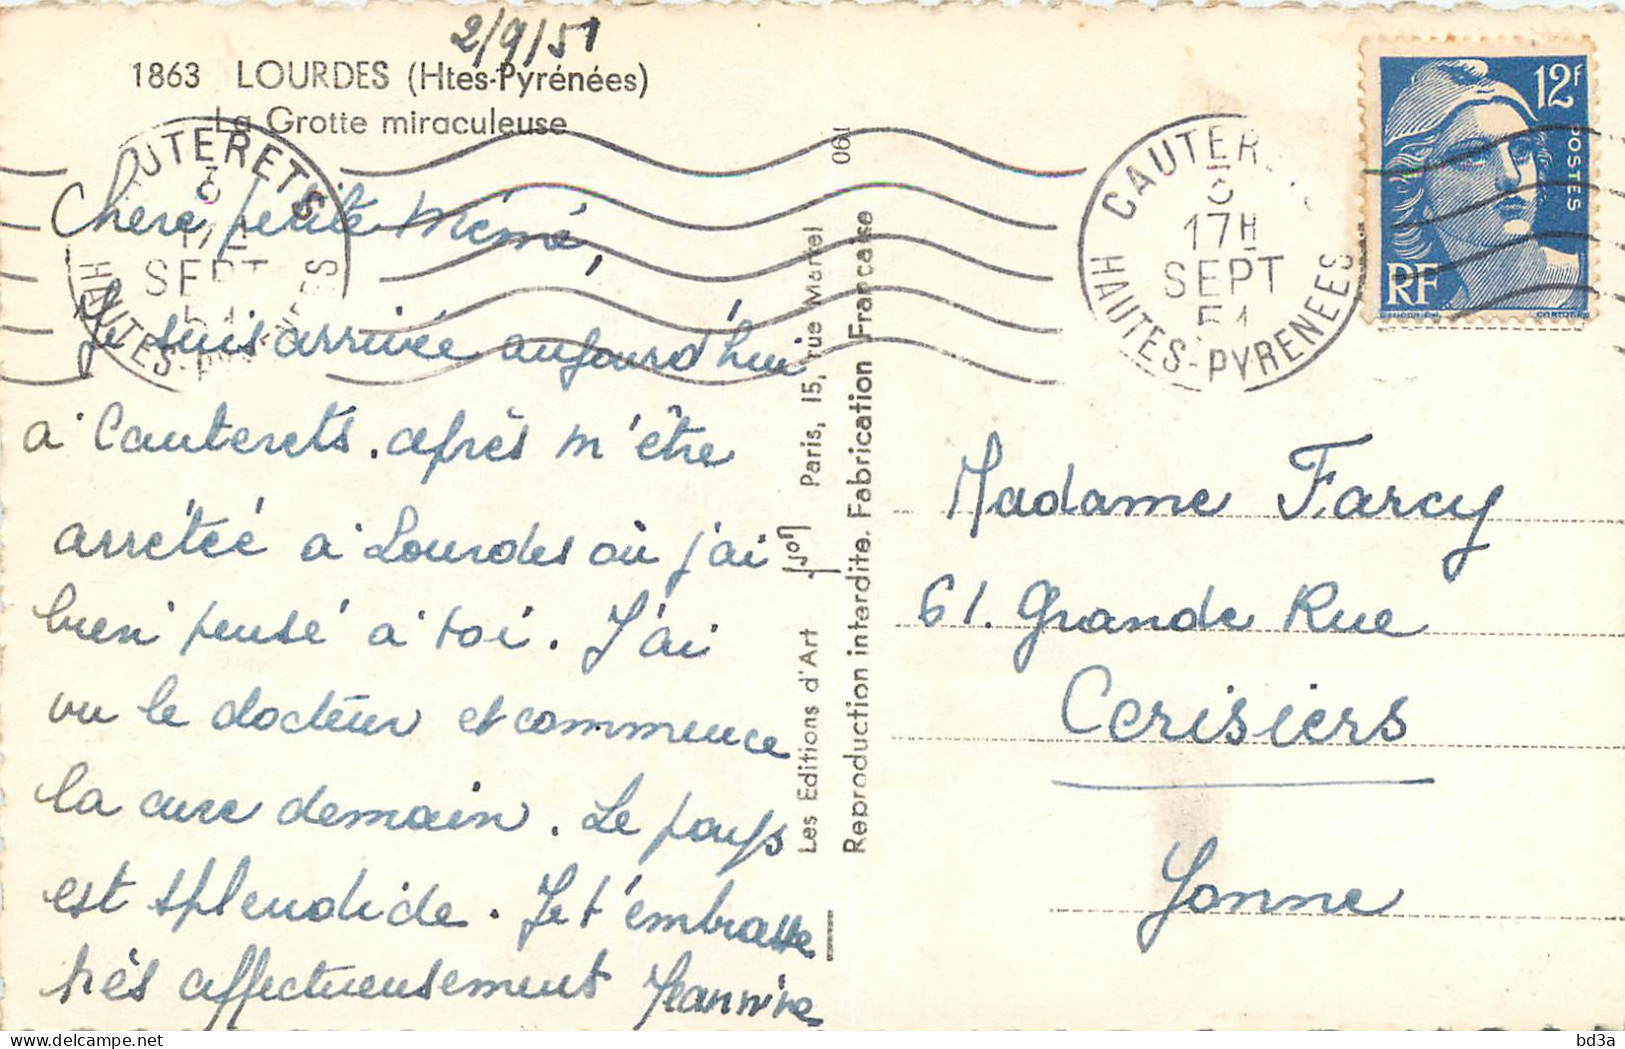 2/9/51
1863 LOURDES (Htes-Pyrénées)
La Grotte miraculeuse
Chère petite Mémé,
Je suis arrivée aujourd'hui
à Cauterets. après m'être
arrêtée à Lourdes où j'ai
bien pensé à toi. J'ai
vu le docteur et commence
la cure demain. Le pays
est splendide. Je t'embrasse
très affectueusement Jeannine
Les Editions d'Art Paris, 15, rue Martel
Reproduction interdite. Fabrication Française
CAUTERETS
17H
SEPT
51
HAUTES-PYRENEES
CAUTER
17H
SEPT
51
HAUTES-PYRENEES
12F
POSTES
RF
Madame Farcy
61. Grande Rue
Cerisiers
Yonne
delcampe.net
bd3a